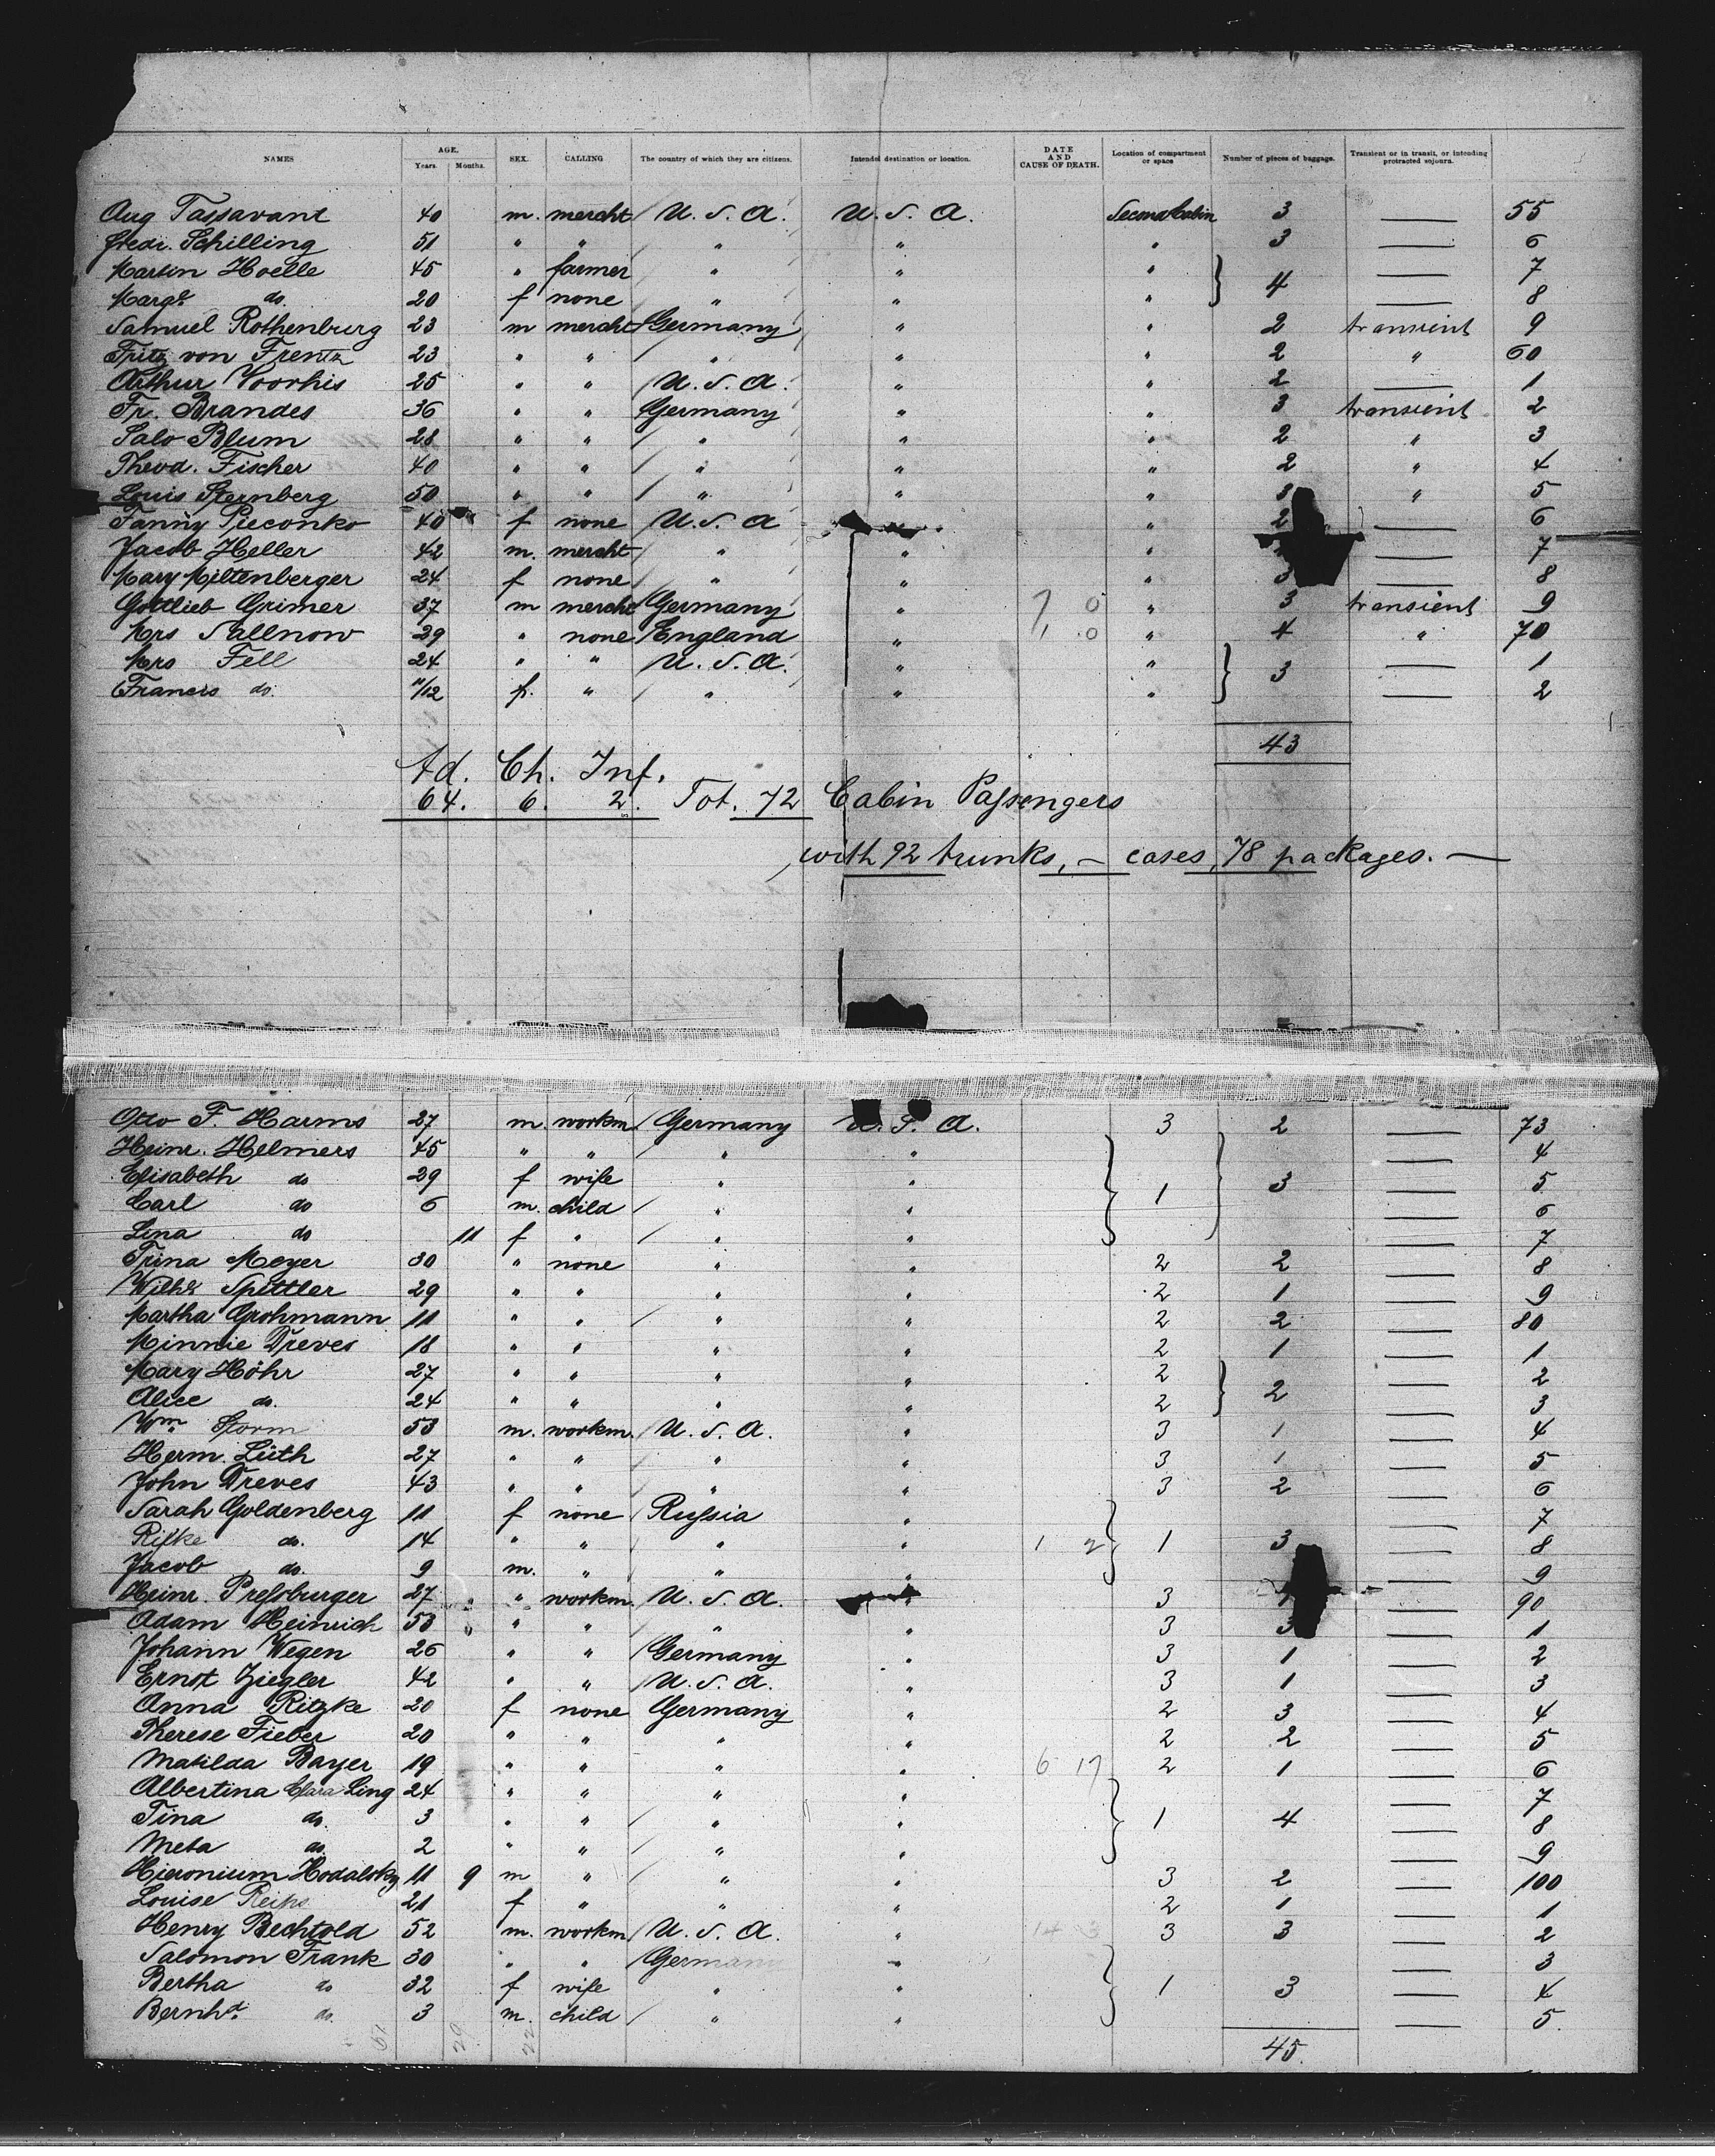 NAMES AGE. Years. Months. SEX. CALLING The country of which they are citizens. Intended destination or location. DATE AND CAUSE OF DEATH. Location of compartment or space Number of pieces of baggage. Transient or in transit, or intending protracted sojourn.
Aug Passavant 40 m. mercht U. S. A. U. S. A. Second Cabin 3 — 55
Fredr. Schilling 51 " " " " " 3 — 6
Martin Hoelle 45 " farmer " " " } 4 — 7
Margt. do. 20 f none " " " — 8
Samuel Rothenburg 23 m mercht Germany " " 2 transient 9
Fritz von Frentz 23 " " " " " 2 " 60
Arthur Voorhis 25 " " U. S. A. " " 2 — 1
Fr. Brandes 36 " " Germany " " 3 transient 2
Salo Blum 28 " " " " " 2 " 3
Theod. Fischer 40 " " " " " 2 " 4
Louis Sternberg 50 " " " " " 3 " 5
Fanny Pieconko 40 f none U. S. A " " 2 — 6
Jacob Heller 42 m. mercht " " " — 7
Mary Miltenberger 24 f none " " " 3 — 8
Gottlieb Grimer 37 m mercht Germany " 7 0 " 3 transient 9
Mrs Sallnow 29 " none England " 1 0 " 4 " 70
Mrs Fell 24 " " U. S. A. " " } 3 — 1
Francis do. 11/12 f. " " " " — 2
43
Ad. Ch. Inf.
64. 6. 2. Tot. 72 Cabin Passengers
with 92 trunks, — cases, 78 packages. —
Otto F. Harms 27 m. workm Germany U. S. A. 3 2 — 73
Heinr. Helmers 45 " " " " — 4
Elisabeth do 29 f wife " " } 1 } 3 — 5
Carl do 6 m. child " " — 6
Lina do 11 f " " " — 7
Trina Meyer 30 " none " " 2 2 — 8
Wilhe Spittler 29 " " " " 2 1 — 9
Martha Grohmann 11 " " " " 2 2 — 80
Minnie Dreves 18 " " " " 2 1 — 1
Mary Höhr 27 " " " " 2 } 2 — 2
Alice do. 24 " " " " 2 — 3
Wm. Storm 53 m. workm. U. S. A. " 3 1 — 4
Herm. Lüth 27 " " " " 3 1 — 5
John Dreves 43 " " " " 3 2 — 6
Sarah Goldenberg 11 f none Russia " — 7
Rifke do. 14 " " " " 1 2 } 1 3 — 8
Jacob do. 9 m. " " " — 9
Heinr. Pressburger 27 " workm. U. S. A. " 3 — 90
Adam Heinrich 53 " " " " 3 3 — 1
Johann Wegen 26 " " Germany " 3 1 — 2
Ernst Ziegler 42 " " U. S. A. " 3 1 — 3
Anna Ritzke 20 f none Germany " 2 3 — 4
Therese Fieber 20 " " " " 2 2 — 5
Matilda Bayer 19 " " " " 6 17 2 1 — 6
Albertina Clara Ling 24 " " " " — 7
Tina do. 3 " " " " } 1 4 — 8
Meta do. 2 " " " " — 9
Hieronium Hodalsky 11 9 m " " " 3 2 — 100
Louise Reiks 21 f " " " 2 1 — 1
Henry Bechtold 52 m. workm U. S. A. " 14 3 3 — 2
Salomon Frank 30 " " Germany " — 3
Bertha do 32 f wife " " } 1 3 — 4
Bernhd. do. 3 m. child " " — 5
45.